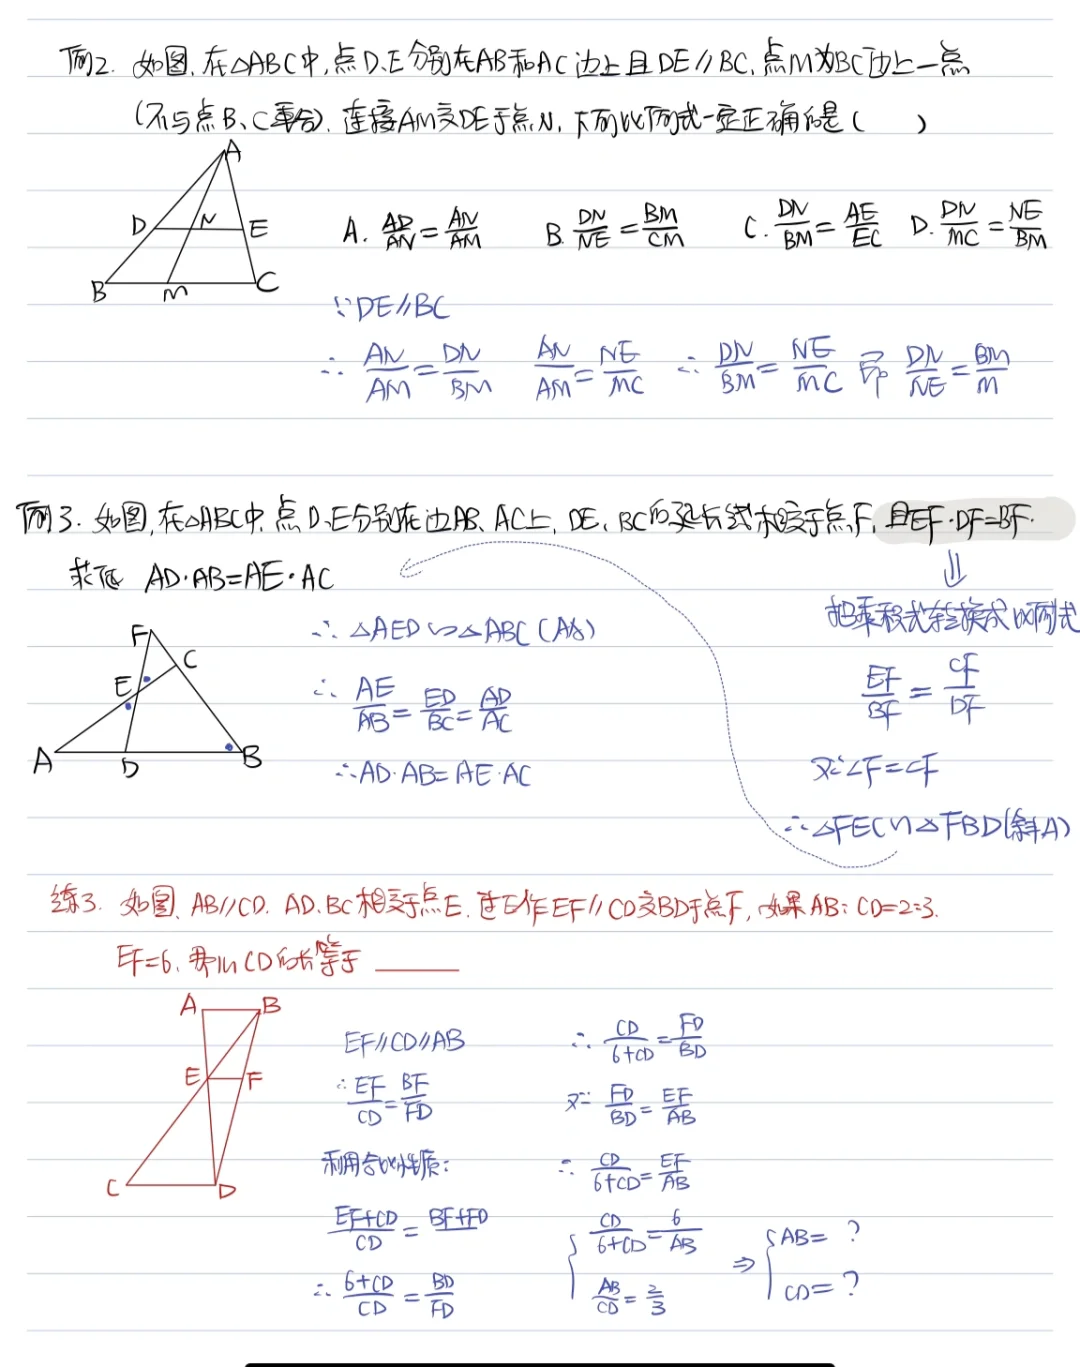 例2. 如图,在△ABC中,点D、E分别在AB和AC边上且DE∥BC,点M为BC边上一点
(不与点B、C重合).连接AM交DE于点N,下列比例式一定正确的是( )
A
D N E
B M C
A. AD/AN=AN/AM B. DN/NE=BM/CM C. DN/BM=AE/EC D. DN/MC=NE/BM
∵DE∥BC
∴ AN/AM=DN/BM AN/AM=NE/MC ∴ DN/BM=NE/MC 即 DN/NE=BM/M
例3. 如图,在△ABC中,点D、E分别在边AB、AC上,DE、BC的延长线相交于点F,且EF·DF=BF·
求证 AD·AB=AE·AC
F
C
E
A D B
∴△AED∽△ABC(AA)
∴ AE/AB=ED/BC=AD/AC
∴AD·AB=AE·AC
⇓
把乘积式转换成比例式
EF/BF=CF/DF
又∵∠F=∠F
∴△FEC∽△FBD(斜A)
练3. 如图,AB∥CD.AD、BC相交于点E,过E作EF∥CD交BD于点F,如果AB:CD=2:3.
EF=6,那么CD的长等于
A B
E F
C D
EF∥CD∥AB
∴EF/CD=BF/FD
利用合比性质:
EF+CD/CD=BF+FD
∴ 6+CD/CD=BD/FD
∴ CD/6+CD=FD/BD
又∵ FD/BD=EF/AB
∴ CD/6+CD=EF/AB
{ CD/6+CD=6/AB
AB/CD=2/3
⇒ { AB=?
CD=?